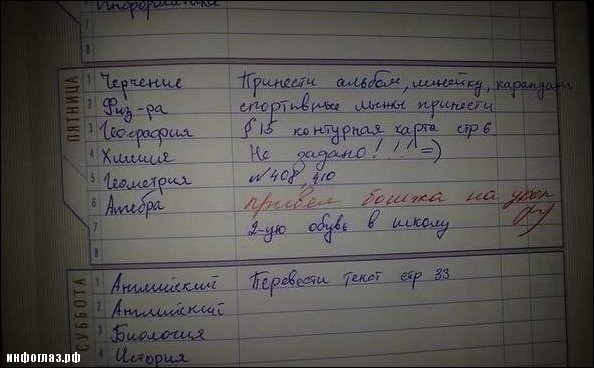 Информатика
7
8
ПЯТНИЦА
1 Черчение Принести альбом, линейку, карандаш
2 Физ-ра спортивные лыжы принести
3 География § 15 контурная карта стр 6
4 Химия Не задано!!!! =)
5 Геометрия №408, 410
6 Алгебра привел бошка на урок
7 2-ую обувь в школу
8
СУББОТА
1 Английский Перевести текст стр 33
2 Английский
3 Биология
4 История
инфоглаз.рф